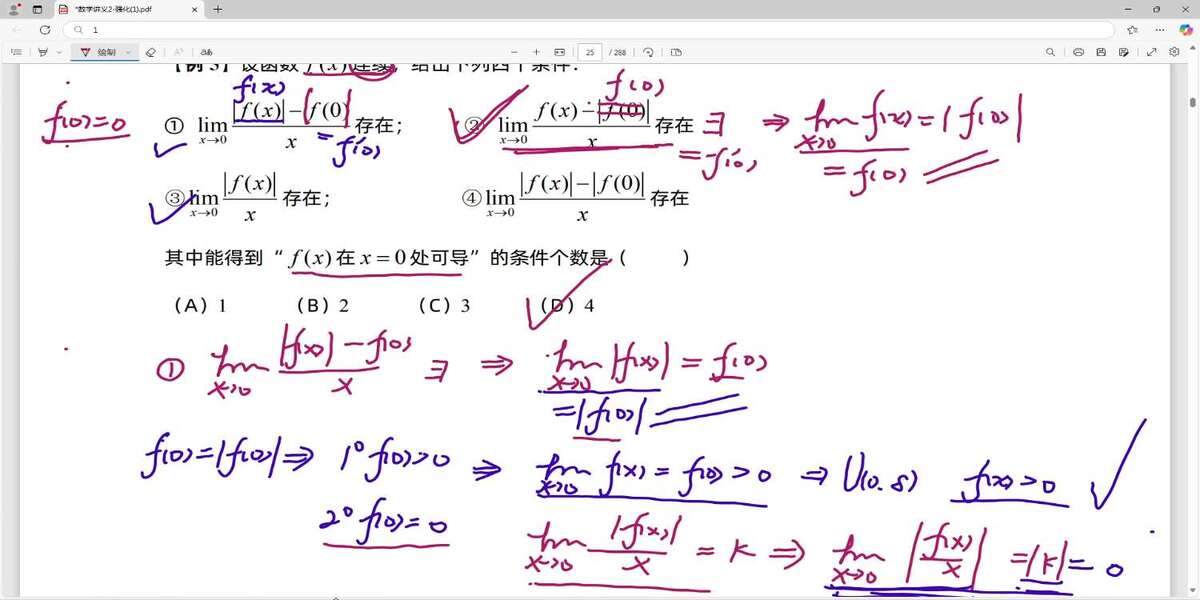 *数学讲义2-强化(1).pdf
1
绘制
25 / 288
【例 3】设函数 f(x) 连续，给出下列四个条件：
f(x) f(0)
f(0)=0 ① lim_{x→0} (|f(x)|−|f(0)|)/x 存在； ② lim_{x→0} (f(x)−|f(0)|)/x 存在 ∃ ⇒ lim_{x→0} f(x) = |f(0)|
= f'(0) = f'(0) = f(0)
③ lim_{x→0} |f(x)|/x 存在； ④ lim_{x→0} (|f(x)|−|f(0)|)/x 存在
其中能得到“ f(x) 在 x = 0 处可导”的条件个数是（ ）
（A）1 （B）2 （C）3 （D）4
① lim_{x→0} (|f(x)| − f(0))/x ∃ ⇒ lim_{x→0} |f(x)| = f(0)
= |f(0)|
f(0)=|f(0)| ⇒ 1° f(0)>0 ⇒ lim_{x→0} f(x) = f(0) > 0 ⇒ U(0.δ) f(x)>0
2° f(0) = 0
lim_{x→0} |f(x)|/x = K ⇒ lim_{x→0} |f(x)/x| = |K| = 0